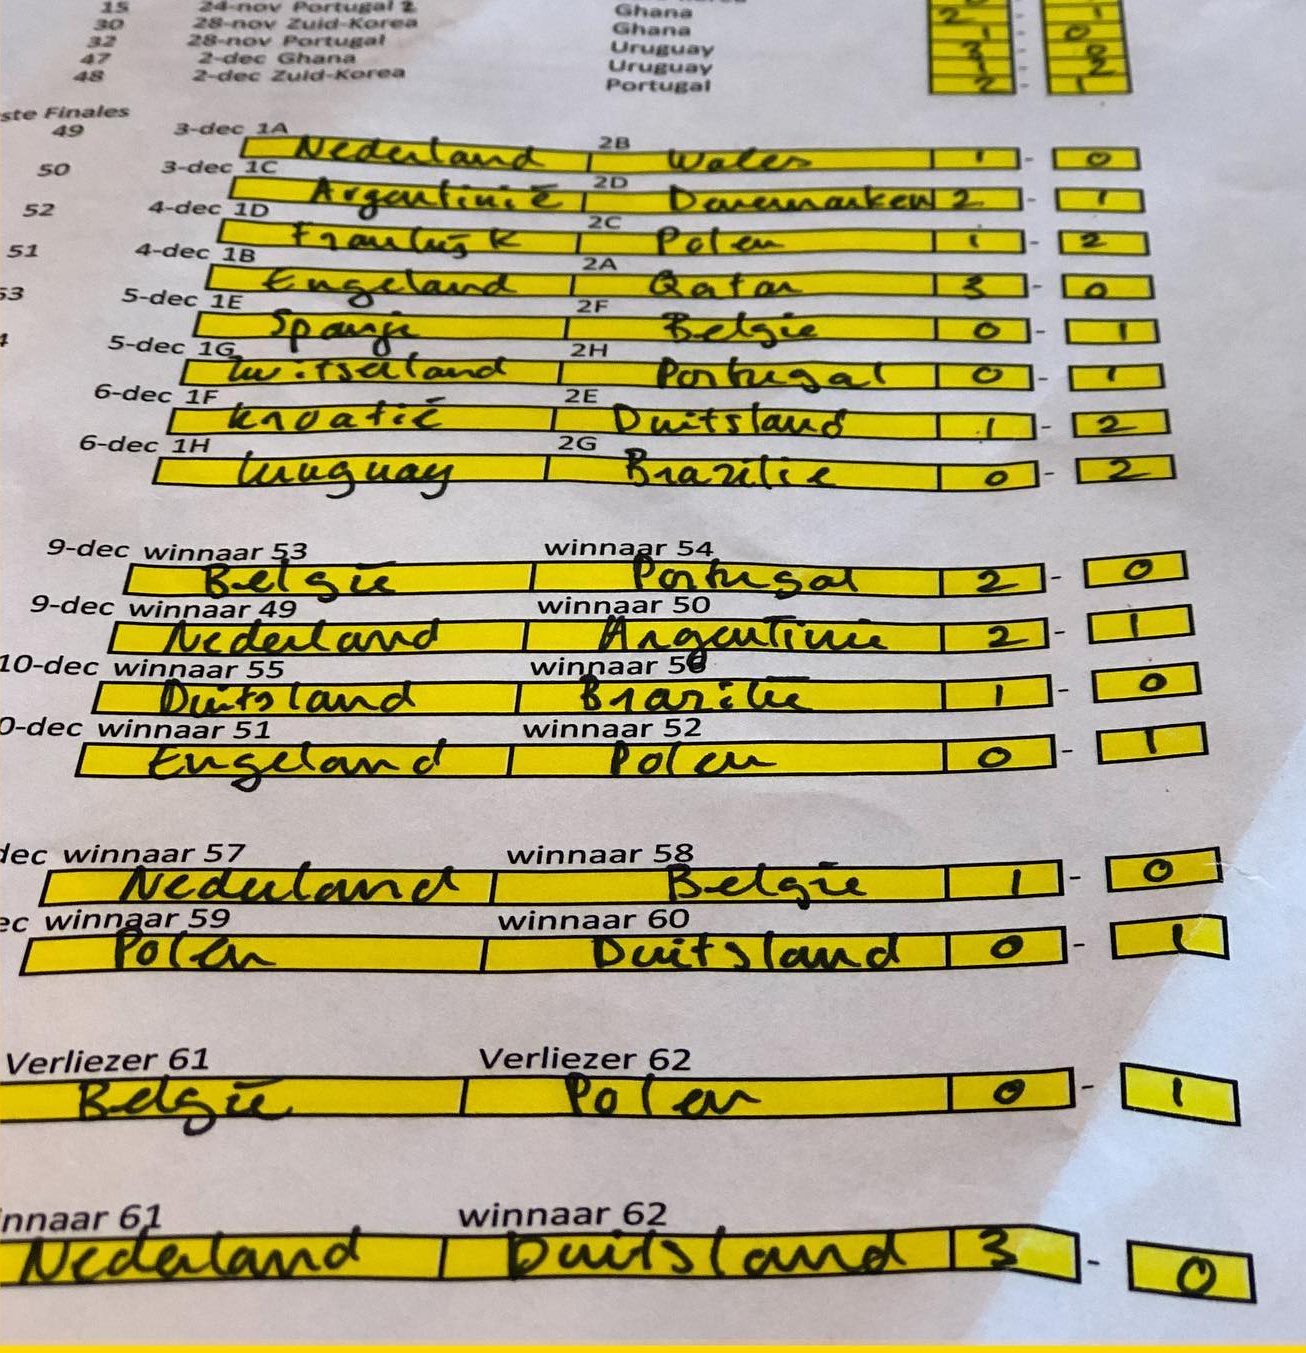 15 24-nov Portugal 2 Ghana 2 - 1
30 28-nov Zuid-Korea Ghana 1 - 0
32 28-nov Portugal Uruguay 3 -
47 2-dec Ghana Uruguay 1 - 2
48 2-dec Zuid-Korea Portugal 2 - 1
ste Finales
49 3-dec 1A 2B
Nederland Wales 1 - 0
50 3-dec 1C 2D
Argentinië Denemarken 2 - 1
52 4-dec 1D 2C
Frankrijk Polen 1 - 2
51 4-dec 1B 2A
Engeland Qatar 3 - 0
53 5-dec 1E 2F
Spanje Belgie 0 - 1
4 5-dec 1G 2H
Zwitserland Portugal 0 - 1
6-dec 1F 2E
Kroatië Duitsland 1 - 2
6-dec 1H 2G
Uruguay Brazilie 0 - 2
9-dec winnaar 53 winnaar 54
België Portugal 2 - 0
9-dec winnaar 49 winnaar 50
Nederland Argentinie 2 - 1
10-dec winnaar 55 winnaar 56
Duitsland Brazilië 1 - 0
0-dec winnaar 51 winnaar 52
Engeland Polen 0 - 1
dec winnaar 57 winnaar 58
Nederland België 1 - 0
ec winnaar 59 winnaar 60
Polen Duitsland 0 - 1
Verliezer 61 Verliezer 62
België Polen 0 - 1
nnaar 61 winnaar 62
Nederland Duitsland 3 - 0